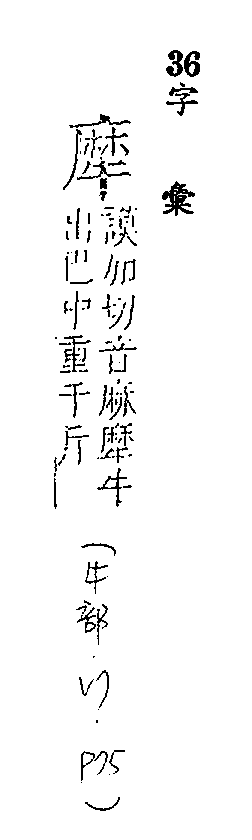 36
字彙
犘
謨加切音麻犘牛
出巴中重千斤
(牛部. . P75)